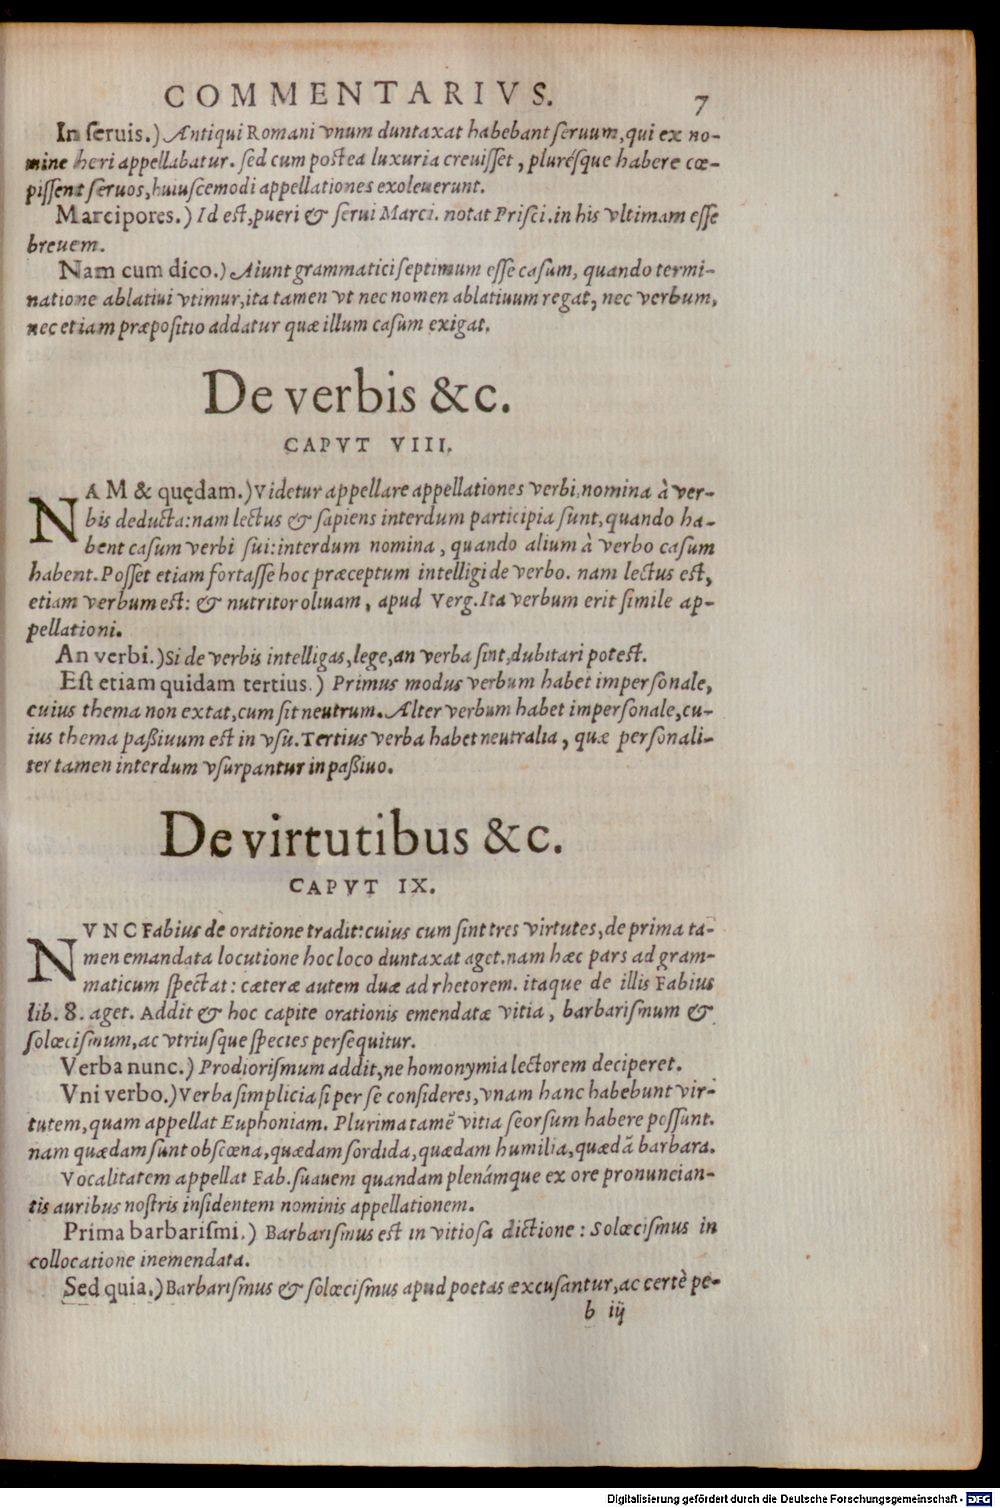 COMMENTARIVS. 7
In ſeruis.) Antiqui Romani vnum duntaxat habebant ſeruum, qui ex no-
mine heri appellabatur. ſed cum poſtea luxuria creuiſſet, pluréſque habere cœ-
piſſent ſeruos, huiuſcemodi appellationes exoleuerunt.
Marcipores.) Id eſt, pueri & ſerui Marci. notat Priſci. in his vltimam eſſe
breuem.
Nam cum dico.) Aiunt grammatici ſeptimum eſſe caſum, quando termi-
natione ablatiui vtimur, ita tamen vt nec nomen ablatiuum regat, nec verbum,
nec etiam præpoſitio addatur quæ illum caſum exigat.
De verbis &c.
CAPVT VIII.
NAM & quędam.) Videtur appellare appellationes verbi, nomina à ver-
bis deducta: nam lectus & ſapiens interdum participia ſunt, quando ha-
bent caſum verbi ſui: interdum nomina, quando alium à verbo caſum
habent. Poſſet etiam fortaſſe hoc præceptum intelligi de verbo. nam lectus eſt,
etiam verbum eſt: & nutritor oliuam, apud Verg. Ita verbum erit ſimile ap-
pellationi.
An verbi.) Si de verbis intelligas, lege, an verba ſint, dubitari poteſt.
Eſt etiam quidam tertius.) Primus modus verbum habet imperſonale,
cuius thema non extat, cum ſit neutrum. Alter verbum habet imperſonale, cu-
ius thema paßiuum eſt in vſu. Tertius verba habet neutralia, quæ perſonali-
ter tamen interdum vſurpantur in paßiuo.
De virtutibus &c.
CAPVT IX.
NVNC Fabius de oratione tradit: cuius cum ſint tres virtutes, de prima ta-
men emandata locutione hoc loco duntaxat aget. nam hæc pars ad gram-
maticum ſpectat: cæteræ autem duæ ad rhetorem. itaque de illis Fabius
lib. 8. aget. Addit & hoc capite orationis emendatæ vitia, barbariſmum &
ſolœciſmum, ac vtriuſque ſpecies perſequitur.
Verba nunc.) Prodioriſmum addit, ne homonymia lectorem deciperet.
Vni verbo.) Verba ſimplicia ſi per ſe conſideres, vnam hanc habebunt vir-
tutem, quam appellat Euphoniam. Plurima tamē vitia ſeorſum habere poſſunt.
nam quædam ſunt obſcœna, quædam ſordida, quædam humilia, quædā barbara.
Vocalitatem appellat Fab. ſuauem quandam plenámque ex ore pronuncian-
tis auribus noſtris inſidentem nominis appellationem.
Prima barbariſmi.) Barbariſmus eſt in vitioſa dictione: Solœciſmus in
collocatione inemendata.
Sed quia.) Barbariſmus & ſolœciſmus apud poetas excuſantur, ac certè pe-
b iij
Digitalisierung gefördert durch die Deutsche Forschungsgemeinschaft - DFG